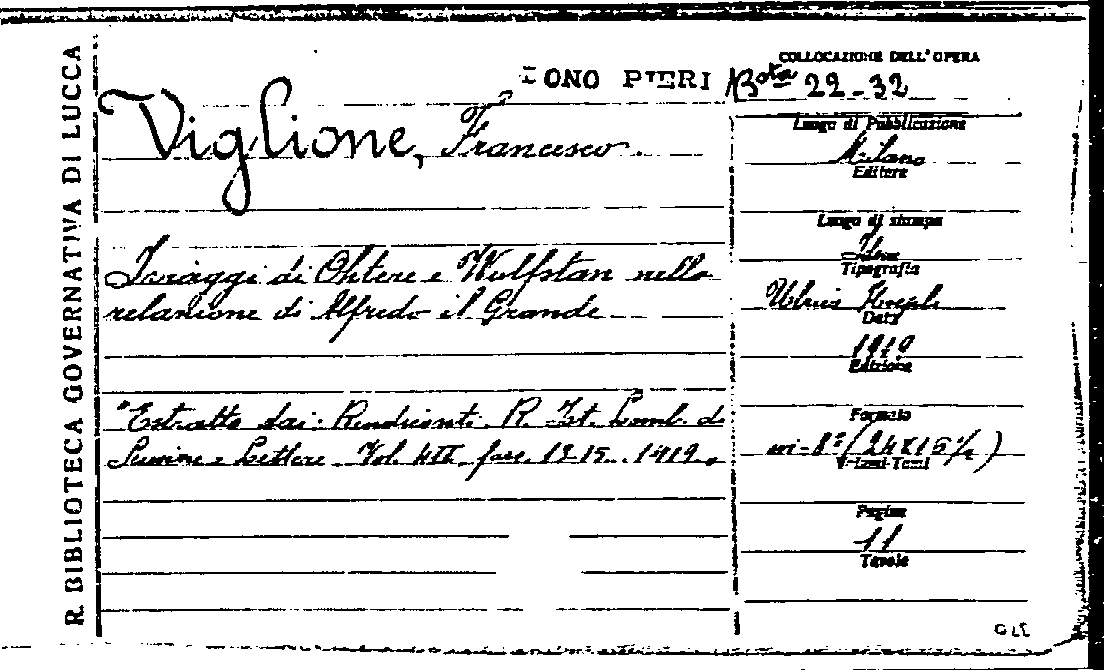 R. BIBLIOTECA GOVERNATIVA DI LUCCA
DONO PIERI
COLLOCAZIONE DELL'OPERA
Bta 22-32
Viglione, Francesco.
I viaggi di Ohtere e Wulfstan nella
relazione di Alfredo il Grande
"Estratto dai: Rendiconti R. Ist. Lomb. di
Scienze e Lettere Vol. fasc. 1919
Luogo di Pubblicazione
Milano
Editore
Luogo di stampa
Idem
Tipografia
Ulrico Hoepli
Data
1919
Edizione
Formato
in-8° (24x15½)
Volumi-Tomi
Pagine
11
Tavole